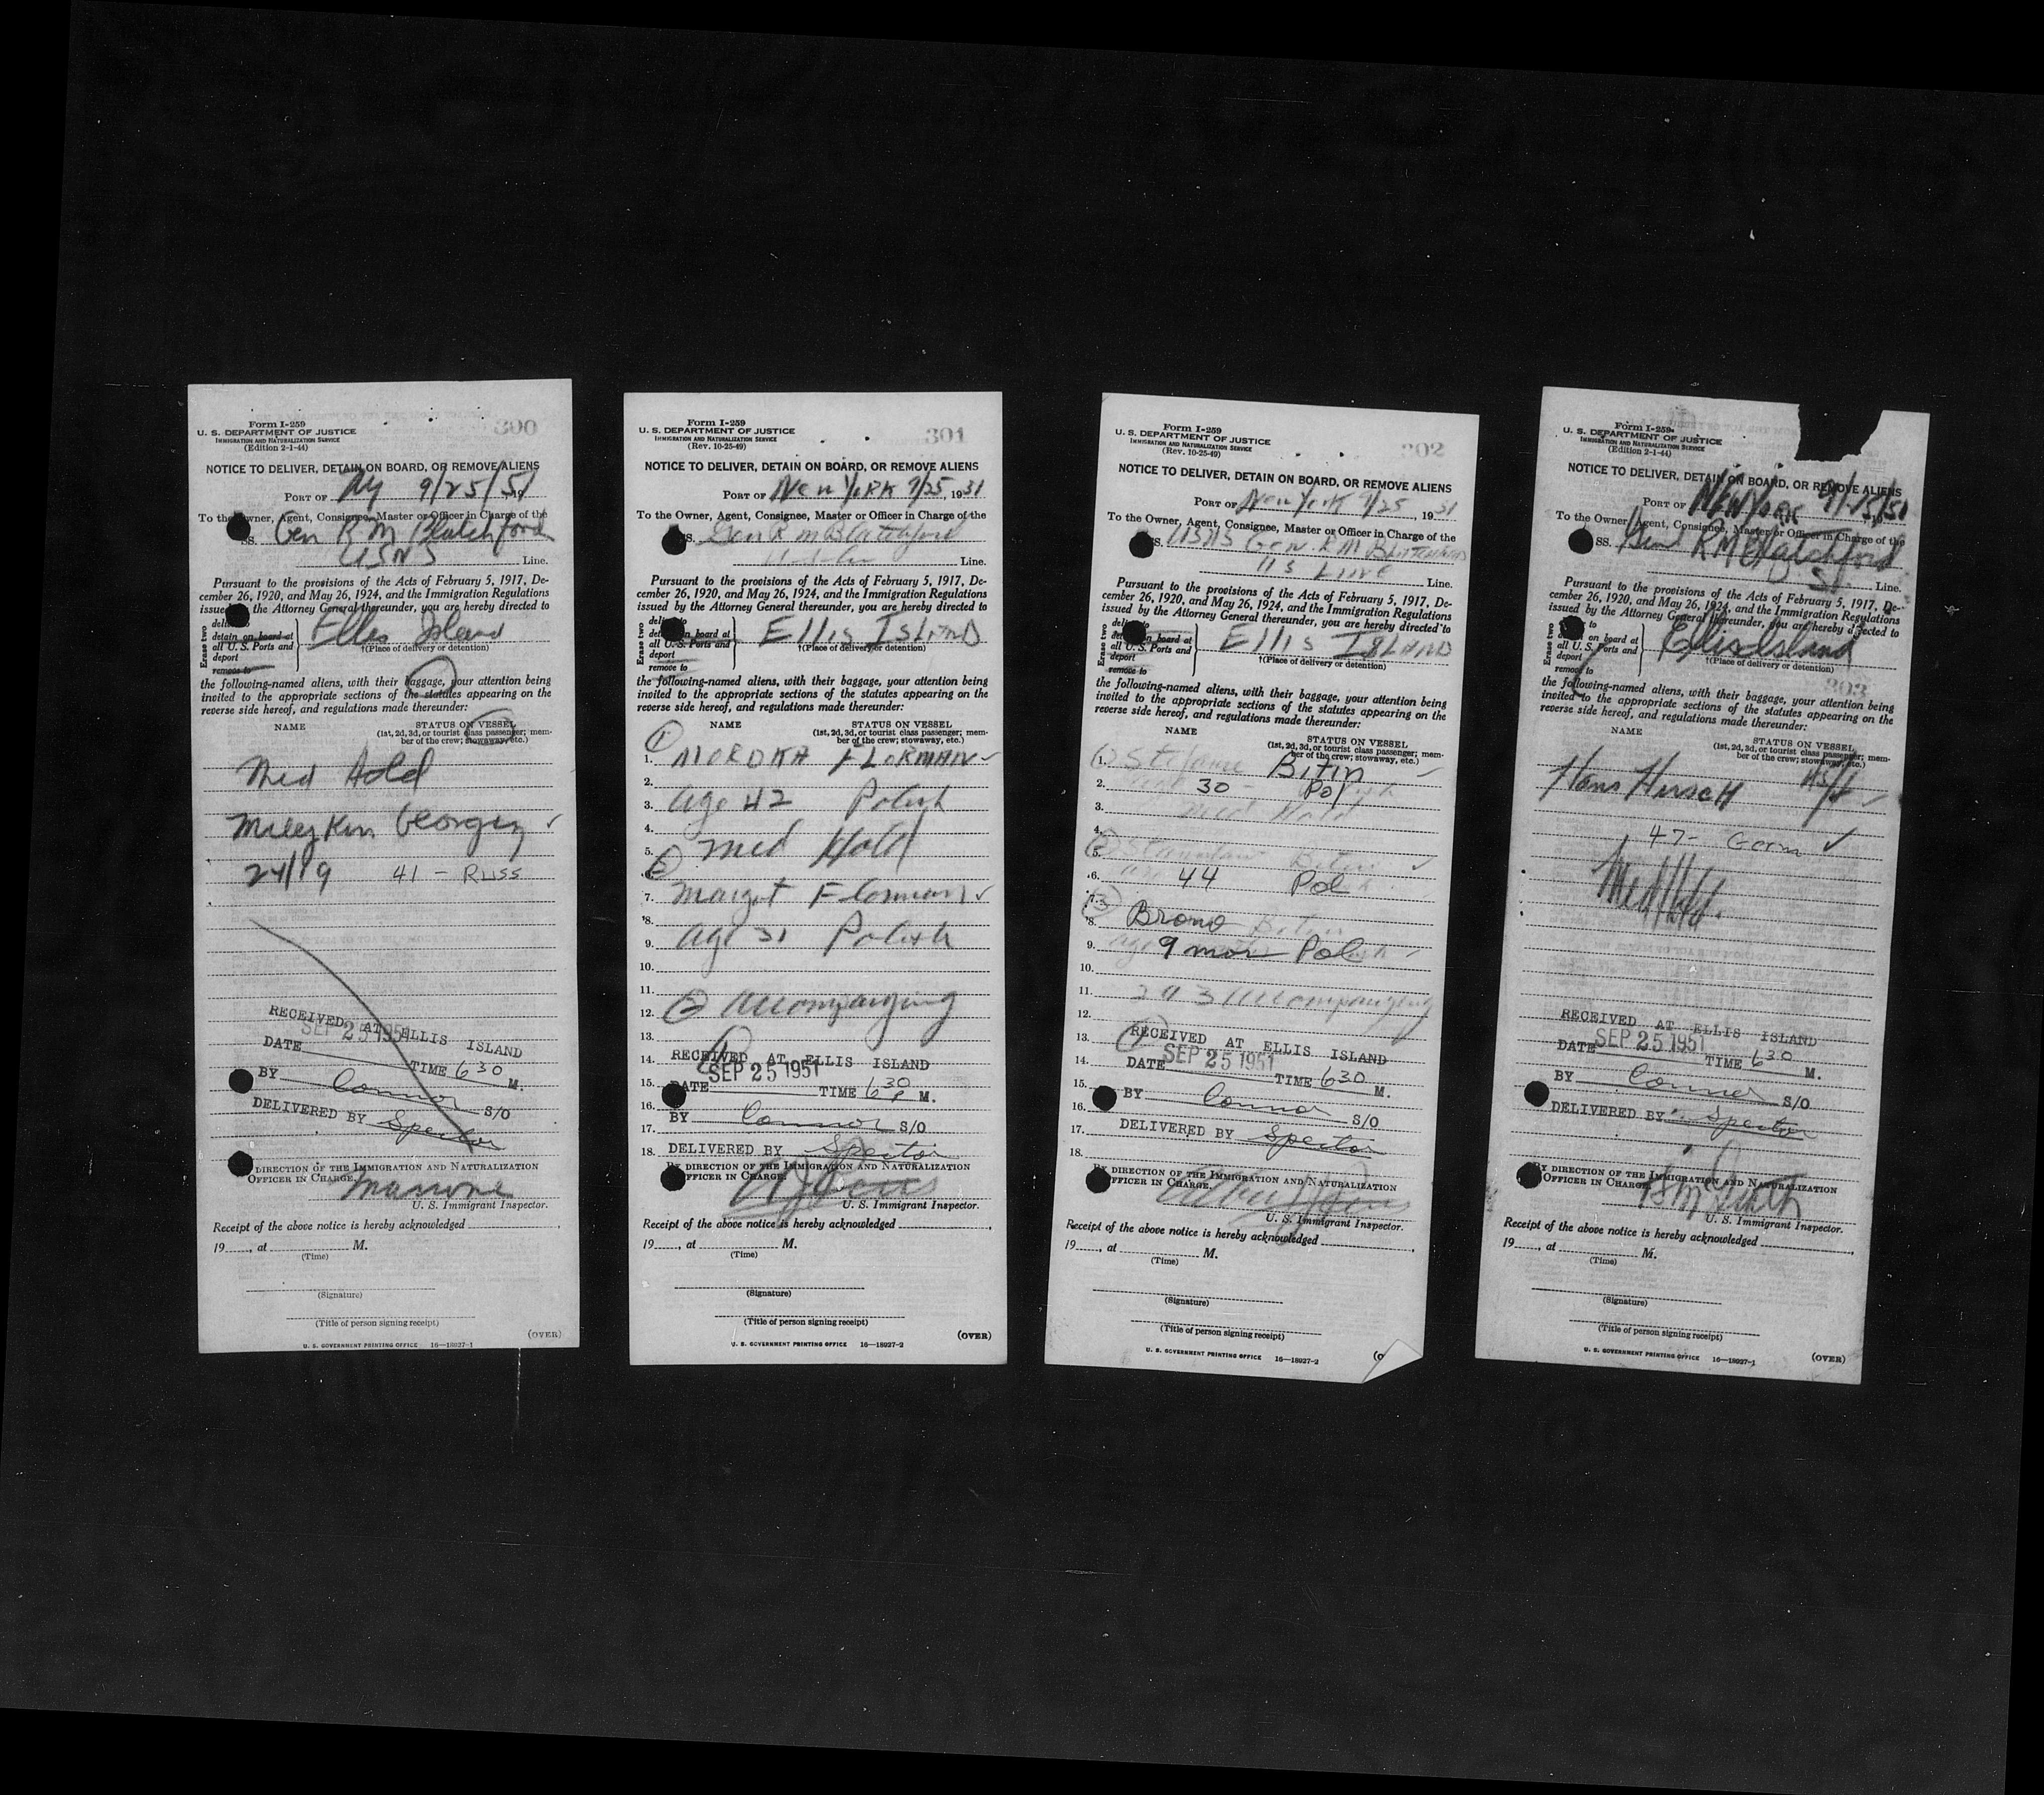 Form I-259
U. S. DEPARTMENT OF JUSTICE
IMMIGRATION AND NATURALIZATION SERVICE
(Edition 2-1-44)
300
NOTICE TO DELIVER, DETAIN ON BOARD, OR REMOVE ALIENS
PORT OF NY 9/25/51
To the Owner, Agent, Consignee, Master or Officer in Charge of the
SS. Gen R M Blatchford
USNS Line.
Pursuant to the provisions of the Acts of February 5, 1917, De-
cember 26, 1920, and May 26, 1924, and the Immigration Regulations
issued the Attorney General thereunder, you are hereby directed to
Erase two
detain on board at
all U.S. Ports and
deport
remove to
Ellis Island
†(Place of delivery or detention)
the following-named aliens, with their baggage, your attention being
invited to the appropriate sections of the statutes appearing on the
reverse side hereof, and regulations made thereunder:
NAME STATUS ON VESSEL
(1st, 2d, 3d, or tourist class passenger; mem-
ber of the crew; stowaway, etc.)
Med Hold
Georgij ✓
24/19 41 - Russ
RECEIVED AT ELLIS ISLAND
SEP 25 1951
DATE TIME 6 30 M.
BY Connor S/O
DELIVERED BY Spector
BY DIRECTION OF THE IMMIGRATION AND NATURALIZATION
OFFICER IN CHARGE.
Marrone
U. S. Immigrant Inspector.
Receipt of the above notice is hereby acknowledged
19, at M.
(Time)
(Signature)
(Title of person signing receipt)
(OVER)
U. S. GOVERNMENT PRINTING OFFICE 16—18927-1
Form I-259
U. S. DEPARTMENT OF JUSTICE
IMMIGRATION AND NATURALIZATION SERVICE
(Rev. 10-25-49)
301
NOTICE TO DELIVER, DETAIN ON BOARD, OR REMOVE ALIENS
PORT OF New York 9/25, 1951
To the Owner, Agent, Consignee, Master or Officer in Charge of the
SS. Gen R M Blatchford
Line.
Pursuant to the provisions of the Acts of February 5, 1917, De-
cember 26, 1920, and May 26, 1924, and the Immigration Regulations
issued by the Attorney General thereunder, you are hereby directed to
Erase two
detain on board at
all U.S. Ports and
deport
remove to
Ellis Island
†(Place of delivery or detention)
the following-named aliens, with their baggage, your attention being
invited to the appropriate sections of the statutes appearing on the
reverse side hereof, and regulations made thereunder:
NAME STATUS ON VESSEL
(1st, 2d, 3d, or tourist class passenger; mem-
ber of the crew; stowaway, etc.)
1
1. MORDKA FLORMAN ✓
2.
3. age 42 Polish
4.
5. Med Hold
6. 2
7. Margot Florman ✓
8.
9. age 31 Polish
10.
11.
12. 2 accompanying
13. 1
14. RECEIVED AT ELLIS ISLAND
SEP 25 1951
15. DATE TIME 6 30 P M.
16.
17. BY Connor S/O
18. DELIVERED BY Spector
BY DIRECTION OF THE IMMIGRATION AND NATURALIZATION
OFFICER IN CHARGE.
U. S. Immigrant Inspector.
Receipt of the above notice is hereby acknowledged
19, at M.
(Time)
(Signature)
(Title of person signing receipt)
(OVER)
U. S. GOVERNMENT PRINTING OFFICE 16—18927-2
Form I-259
U. S. DEPARTMENT OF JUSTICE
IMMIGRATION AND NATURALIZATION SERVICE
(Rev. 10-25-49)
302
NOTICE TO DELIVER, DETAIN ON BOARD, OR REMOVE ALIENS
PORT OF New York 9/25, 1951
To the Owner, Agent, Consignee, Master or Officer in Charge of the
SS. USNS Gen. R M Blatchford
US Line Line.
Pursuant to the provisions of the Acts of February 5, 1917, De-
cember 26, 1920, and May 26, 1924, and the Immigration Regulations
issued by the Attorney General thereunder, you are hereby directed to
Erase two
detain on board at
all U.S. Ports and
deport
remove to
Ellis Island
†(Place of delivery or detention)
the following-named aliens, with their baggage, your attention being
invited to the appropriate sections of the statutes appearing on the
reverse side hereof, and regulations made thereunder:
NAME STATUS ON VESSEL
(1st, 2d, 3d, or tourist class passenger; mem-
ber of the crew; stowaway, etc.)
1. (1) Stefanie Bitin ✓
2. 30 - Pol
3. Med Hold
4.
5. (2) Stanislaw Bitin ✓
6. 44 Pol
7. (3)
8. Brono Bitin
9. 9 mos Pol ✓
10.
11. 2 & 3 accompanying
12.
13. 1 RECEIVED AT ELLIS ISLAND
SEP 25 1951
14. DATE TIME 630 M.
15.
16. BY Connor S/O
17. DELIVERED BY Spector
18.
BY DIRECTION OF THE IMMIGRATION AND NATURALIZATION
OFFICER IN CHARGE.
U. S. Immigrant Inspector.
Receipt of the above notice is hereby acknowledged
19, at M.
(Time)
(Signature)
(Title of person signing receipt)
U. S. GOVERNMENT PRINTING OFFICE 16—18927-2
Form I-259
U. S. DEPARTMENT OF JUSTICE
IMMIGRATION AND NATURALIZATION SERVICE
(Edition 2-1-44)
NOTICE TO DELIVER, DETAIN ON BOARD, OR REMOVE ALIENS
PORT OF New York 9/25/51
To the Owner, Agent, Consignee, Master or Officer in Charge of the
SS. Genl R M Blatchford
Line.
Pursuant to the provisions of the Acts of February 5, 1917, De-
cember 26, 1920, and May 26, 1924, and the Immigration Regulations
issued by the Attorney General thereunder, you are hereby directed to
Erase two
on board at
all U.S. Ports and
deport
remove to
Ellis Island
†(Place of delivery or detention)
303
the following-named aliens, with their baggage, your attention being
invited to the appropriate sections of the statutes appearing on the
reverse side hereof, and regulations made thereunder:
NAME STATUS ON VESSEL
(1st, 2d, 3d, or tourist class passenger; mem-
ber of the crew; stowaway, etc.)
Hans Hirsch
47 - Germ ✓
Med Hld.
RECEIVED AT ELLIS ISLAND
SEP 25 1951
DATE TIME 630 M.
BY Connor S/O
DELIVERED BY Spector
BY DIRECTION OF THE IMMIGRATION AND NATURALIZATION
OFFICER IN CHARGE.
U. S. Immigrant Inspector.
Receipt of the above notice is hereby acknowledged
19, at M.
(Time)
(Signature)
(Title of person signing receipt)
U. S. GOVERNMENT PRINTING OFFICE 16—18927-1
(OVER)